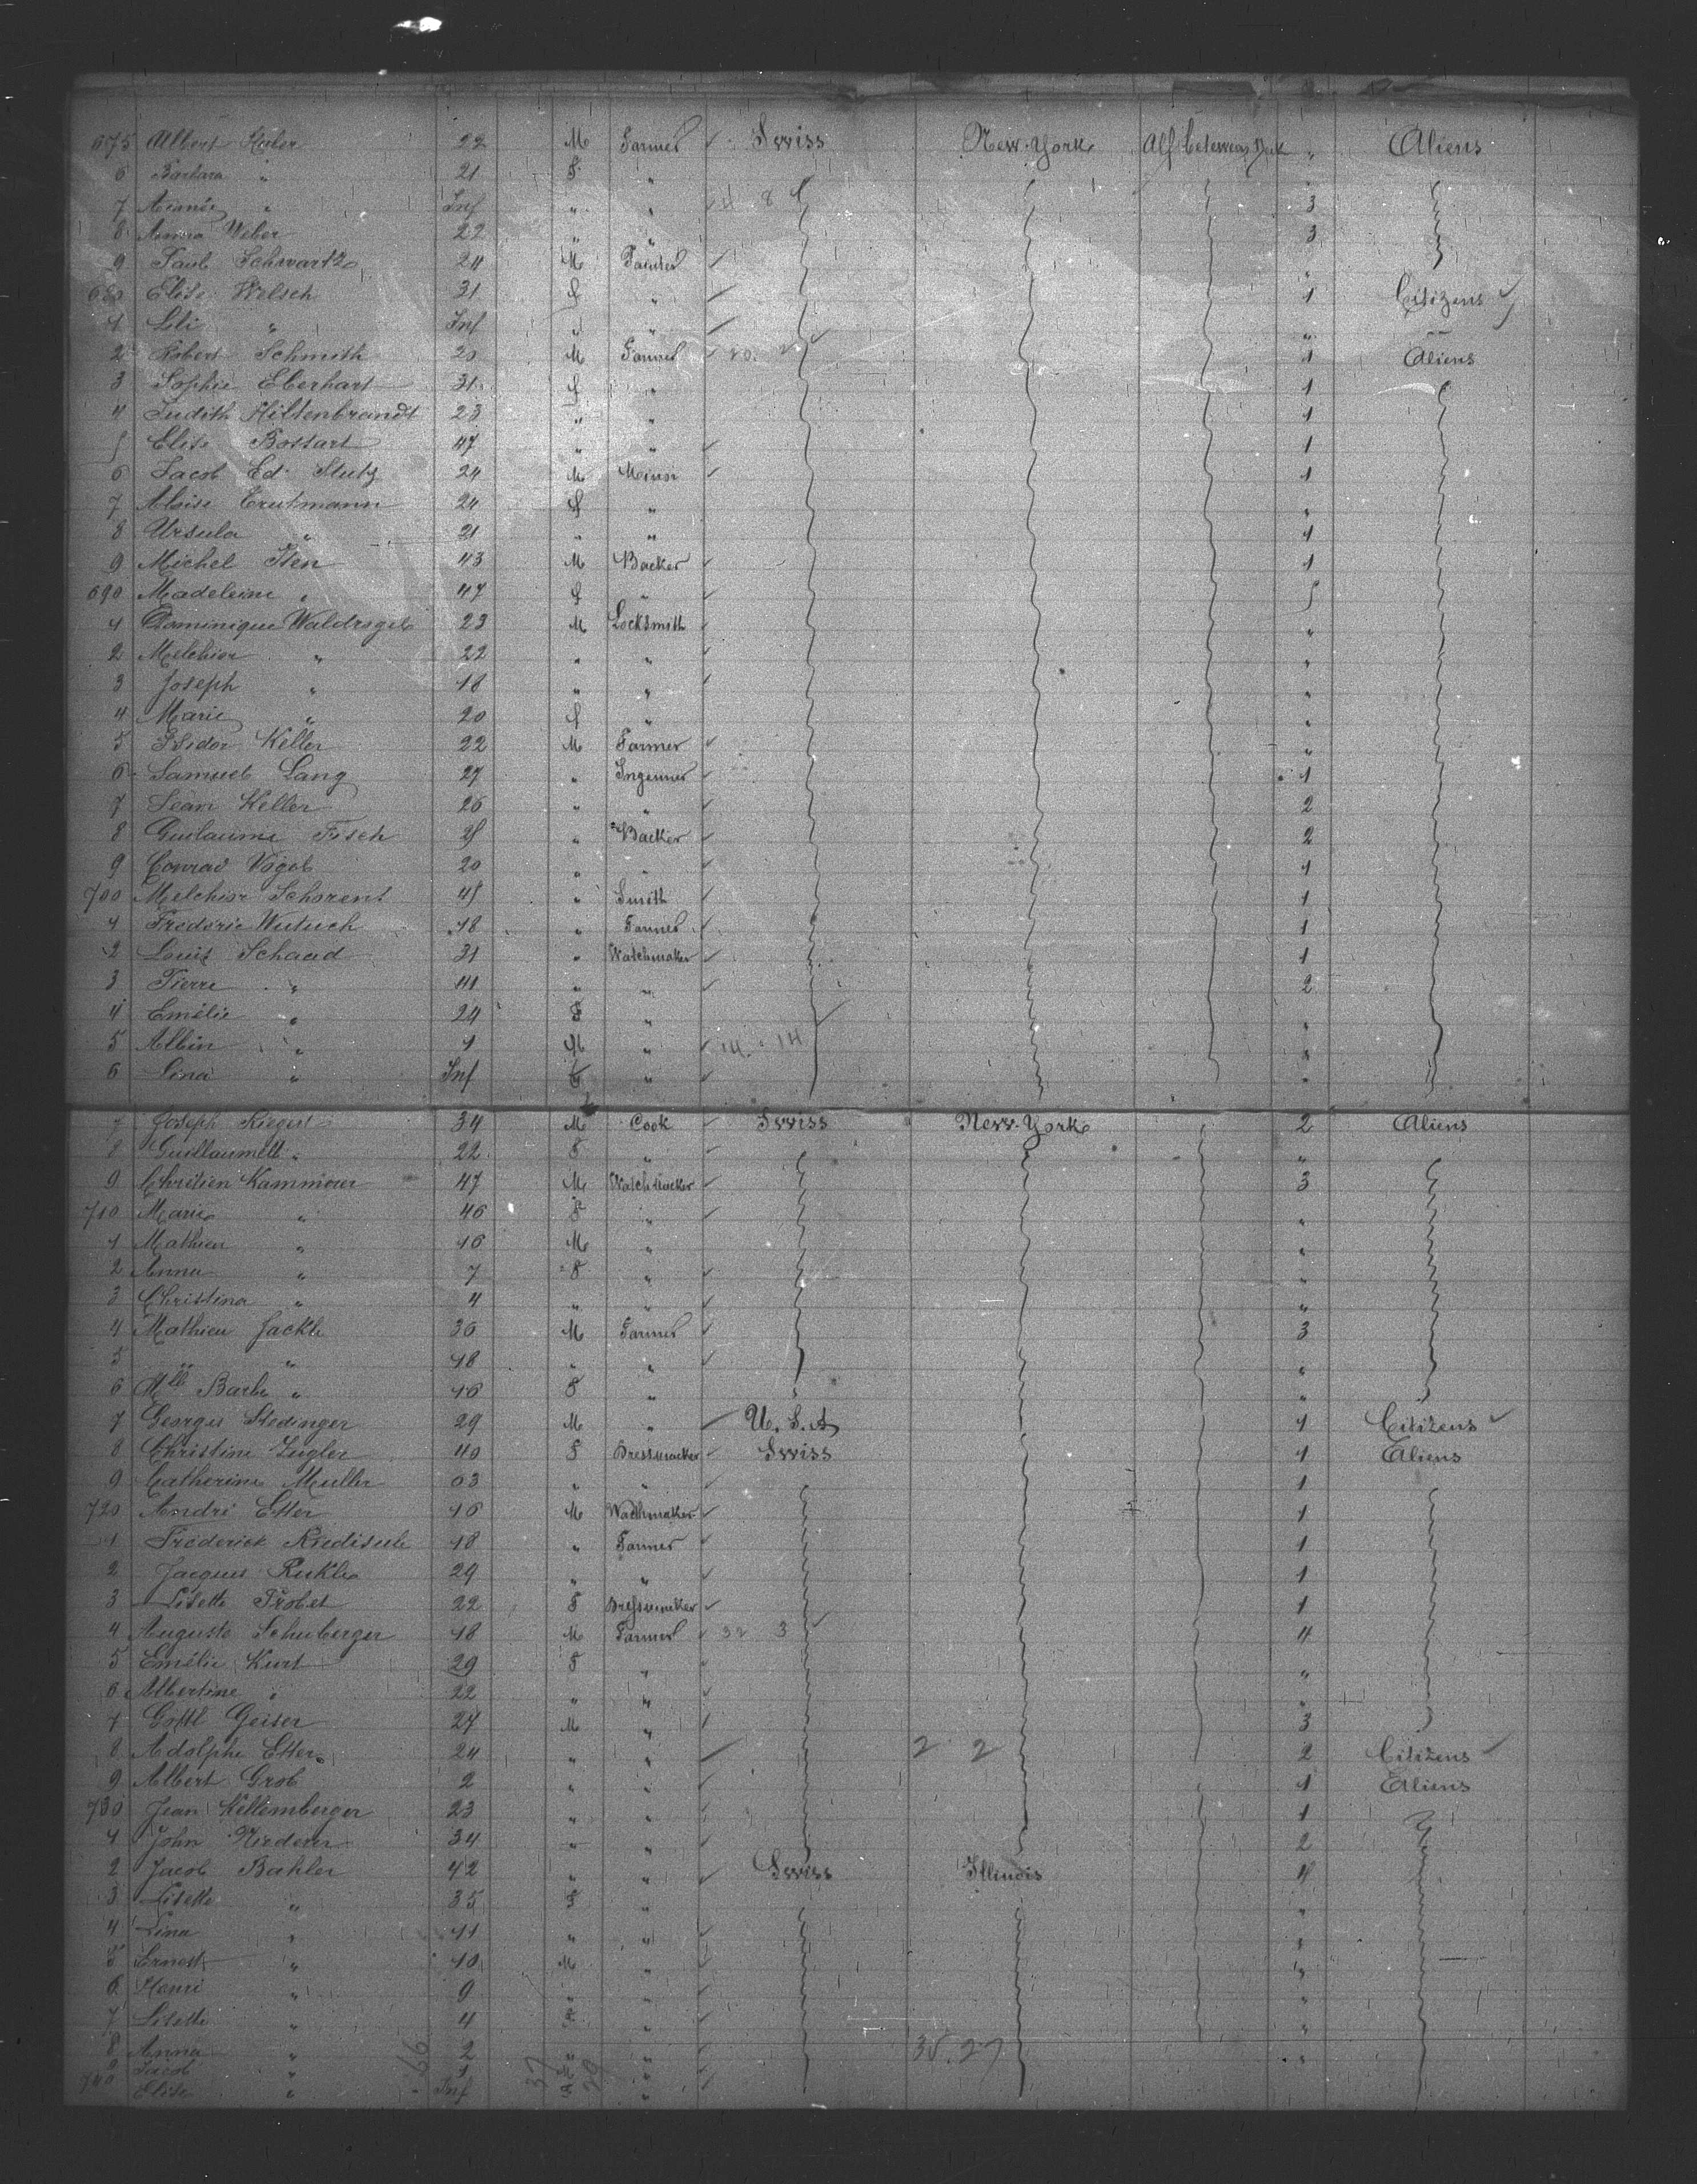 675 Albert Huber 22 M Farmer Swiss New-York Aft betewens Deck " Aliens
6 Barbara " 21 F " "
7 Aimée " Inf " " 4 8 3
8 Anna Weber 22 " " 3
9 Paul Schwartz 24 M Painter "
680 Elise Welsch 31 f " 1 Citizens
1 Lili " Inf " " "
2 Robert Schmith 20 M Farmer 20. 2 1 Aliens
3 Sophie Eberhart 31 f " 1
4 Judith Hiltenbrandt 23 " " 1
5 Elise Bossart 47 " " 1
6 Jacob Ed. Stutz 24 M 1
7 Aloise Trutmann 24 f " "
8 Ursula " 21 " " 1
9 Michel Iten 43 M Backer 1
690 Madeleine " 47 f "
1 Dominique Waldvogel 23 M Locksmith "
2 Melchior " 22 " " "
3 Joseph " 18 " " "
4 Marie " 20 f " "
5 Isidor Keller 22 M Farmer "
6 Samuel Lang 27 " Ingenner 1
7 Jean Keller 26 " " 2
8 Guilaume Fisch " Backer 2
9 Conrad Vogel 20 " " 1
700 Melchior Schorent " Smith 1
1 Frederic Wutuch 18 " Farmer 1
2 Louis Schaad 31 " Watchmaker 1
3 Pierre " 41 " " 2
4 Emélie " 24 F " "
5 Albin " 1 M " 14. 14 "
6 Lina " Inf F " "
7 Joseph Riegert 34 M Cook Swiss New-York 2 Aliens
8 " 22 F " "
9 Chrétien Kammour 47 M Watchmaker 3
710 Marie " 46 F " "
1 Mathieu " 16 M " "
2 Anna " 7 F " "
3 Christina " 4 " " "
4 Mathieu Jackli 36 M Farmer 3
5 " " 18 " " "
6 Mlle Barbe " 16 F " "
7 Georges Stedinger 29 M " U. S. A 1 Citizens
8 Christine Zugler 40 F Dressmacker Swiss 1 Aliens
9 Catherine Muller 63 " " 1
720 André Etter 16 M Wachmaker 1
1 Frederick Riedisuli 18 " Farmer 1
2 Jacques Rickli 29 " " 1
3 Lisette Probst 22 F Dressmacker 1
4 Auguste Schuberger 18 M Farmer 32 3 4
5 Emélie Kurt 29 F " "
6 Albertine " 22 " " "
7 Gottl Geiser 27 M " 3
8 Adolphe Etter 24 " " 2 2 2 Citizens
9 Albert Grob 2 " " 1 Aliens
730 Jean Kellemberger 23 " " 1
1 John Niederer 34 " " 2
2 Jacob Bahler 42 " " Swiss Illinois 4
3 Lisette " 35 F " "
4 Lina " 11 " " "
5 Ernest " 10 M " "
6 Henri " 9 " " "
7 Lisette " 4 F " "
8 Anna " 2 " " 35. 27 "
9 Jacob " 1 "
740 Elise " Inf "
66 37 29